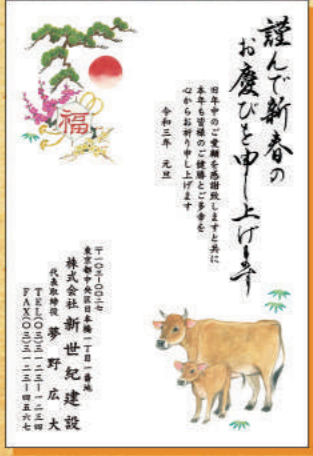 謹んで新春の
お慶びを申し上げます
旧年中のご愛顧を感謝致しますと共に
本年も皆様のご健勝とご多幸を
心からお祈り申し上げます
令和三年　元旦
福
〒一〇三-〇〇二七
東京都中央区日本橋一丁目一番地
株式会社 新世紀建設
代表取締役　夢野広大
TEL(〇三)三一二三-一二三四
FAX(〇三)三一二三-四五六七